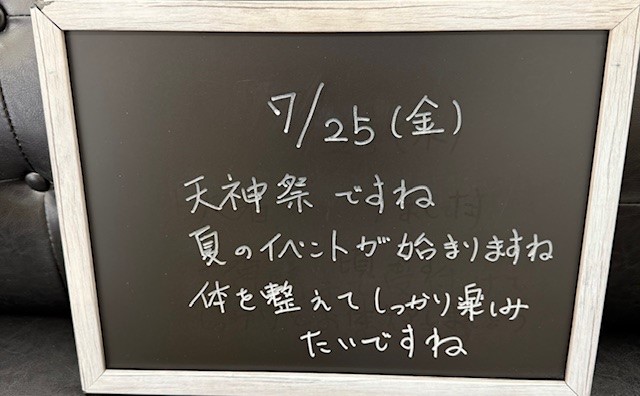 7/25(金)
天神祭ですね
夏のイベントが始まりますね
体を整えてしっかり楽しみ
たいですね